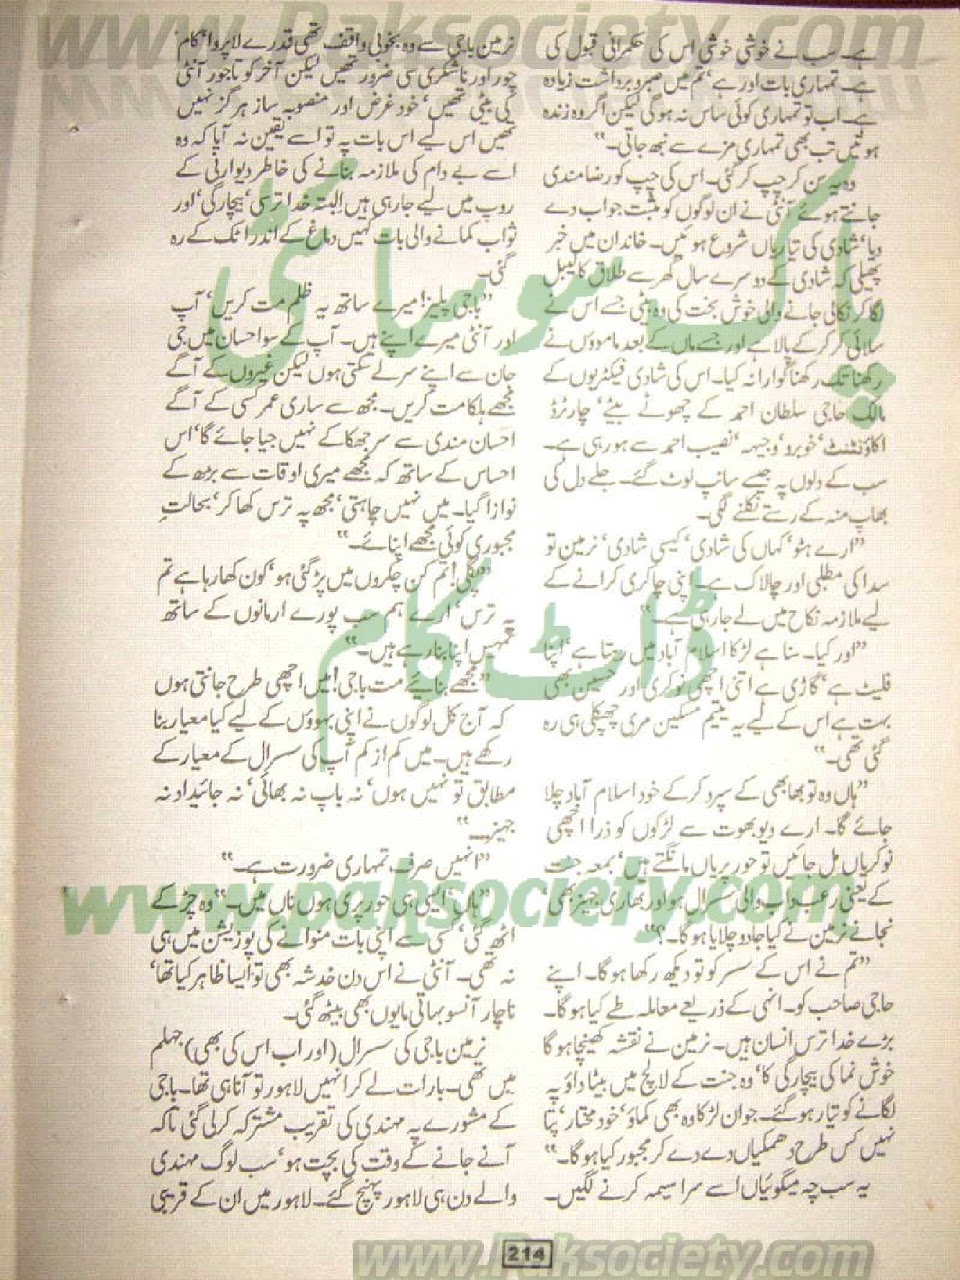 www.Paksociety.com
ہے۔ سب نے خوشی خوشی اس کی حکمرانی قبول کی
ہے۔ تمہاری بات اور ہے‘ تم میں صبر و برداشت زیادہ
ہے۔ اب تو تمہاری کوئی ساس نہ ہوگی لیکن اگر وہ زندہ
ہوتیں تب بھی تمہاری مزے سے نبھ جاتی۔“
وہ یہ سن کر چپ کر گئی۔ اس کی چپ کو رضا مندی
جانتے ہوئے آنٹی نے ان لوگوں کو مثبت جواب دے
دیا‘ شادی کی تیاریاں شروع ہوئیں۔ خاندان میں خبر
پھیلی کہ شادی کے دوسرے سال گھر سے طلاق کا لیبل
لگا کر نکالی جانے والی خوش بخت کی وہ بیٹی جسے اس نے
سلائی کر کر کے پالا ہے اور جسے ماں کے بعد ماموؤں نے
رکھنا تک رکھنا گوارا نہ کیا۔ اس کی شادی فیکٹریوں کے
مالک حاجی سلطان احمد کے چھوٹے بیٹے‘ چارٹرڈ
اکاؤنٹنٹ‘ خوبرو‘ وجیہہ‘ نصیب احمد سے ہو رہی ہے۔
سب کے دلوں پہ جیسے سانپ لوٹ گئے۔ جلے دل کی
بھاپ منہ کے رستے نکلنے لگی۔
”ارے ہٹو‘ کہاں کی شادی‘ کیسی شادی‘ نرمین تو
سدا کی مطلبی اور چالاک ہے۔ اپنی چاکری کرانے کے
لیے ملازمہ نکاح میں لے جا رہی ہے۔“
”اور کیا۔ سنا ہے لڑکا اسلام آباد میں رہتا ہے‘ اپنا
فلیٹ ہے‘ گاڑی ہے اتنی اچھی نوکری اور حسین بھی
بہت ہے اس کے لیے یہ یتیم مسکین مری چھپکلی ہی رہ
گئی تھی۔“
”ہاں وہ تو بھابھی کے سپرد کر کے خود اسلام آباد چلا
جائے گا۔ ارے دیو بھوت سے لڑکوں کو ذرا اچھی
نوکریاں مل جائیں تو حور پریاں مانگتے ہیں‘ بمعہ جنت
کے یعنی رعب داب والی سسرال ہو اور بھاری جہیز بھی
نجانے نرمین نے کیا جادو چلایا ہوگا۔؟“
”تم نے اس کے سسر کو تو دیکھ رکھا ہوگا۔ اپنے
حاجی صاحب کو۔ انہی کے ذریعے معاملہ طے کیا ہوگا۔
بڑے خدا ترس انسان ہیں۔ نرمین نے نقشہ کھینچا ہوگا
خوش نما کی بیچارگی کا‘ وہ جنت کے لالچ میں بیٹا داؤ پہ
لگانے کو تیار ہو گئے۔ جوان لڑکا وہ بھی کماؤ‘ خود مختار‘ پتا
نہیں کس طرح دھمکیاں دے دے کر مجبور کیا ہوگا۔“
یہ سب چہ میگوئیاں اسے سراسیمہ کرنے لگیں۔
نرمین باجی سے وہ بخوبی واقف تھی قدرے لاپروا‘ کام
چور اور ناشکری سی ضرور تھیں لیکن آخر کو تاجور آنٹی
کی بیٹی تھیں‘ خود غرض اور منصوبہ ساز ہرگز نہیں
تھیں اس لیے اس بات پہ تو اسے یقین نہ آیا کہ وہ
اسے بے دام کی ملازمہ بنانے کی خاطر دیورانی کے
روپ میں لیے جا رہی ہیں البتہ خدا ترسی‘ بیچارگی‘ اور
ثواب کمانے والی بات کہیں دماغ کے اندر اٹک کے رہ
گئی۔
”باجی پلیز! میرے ساتھ یہ ظلم مت کریں‘ آپ
اور آنٹی میرے اپنے ہیں۔ آپ کے سو احسان میں جی
جان سے اپنے سر لے سکتی ہوں لیکن غیروں کے آگے
مجھے ہلکا مت کریں۔ مجھ سے ساری عمر کسی کے آگے
احسان مندی سے سر جھکا کے نہیں جیا جائے گا‘ اس
احساس کے ساتھ کہ مجھے میری اوقات سے بڑھ کے
نوازا گیا۔ میں نہیں چاہتی‘ مجھ پہ ترس کھا کر‘ بحالتِ
مجبوری کوئی مجھے اپنائے۔“
”پگلی! تم کن چکروں میں پڑ گئی ہو‘ کون کھا رہا ہے تم
پہ ترس‘ ارے ہم سب پورے ارمانوں کے ساتھ
تمہیں اپنا بنا رہے ہیں۔“
”مجھے بنائیے مت باجی! میں اچھی طرح جانتی ہوں
کہ آج کل لوگوں نے اپنی بہوؤں کے لیے کیا معیار بنا
رکھے ہیں۔ میں کم از کم آپ کی سسرال کے معیار کے
مطابق تو نہیں ہوں‘ نہ باپ نہ بھائی‘ نہ جائیداد نہ
جہیز۔۔۔“
”انہیں صرف تمہاری ضرورت ہے۔“
”ہاں‘ ایسی ہی حور پری ہوں ناں میں۔“ وہ چڑ کے
اٹھ گئی‘ کسی سے اپنی بات منوانے کی پوزیشن میں ہی
نہ تھی۔ آنٹی نے اس دن خدشہ بھی تو ایسا ظاہر کیا تھا‘
ناچار آنسو بہاتی مایوں بھی بیٹھ گئی۔
نرمین باجی کی سسرال (اور اب اس کی بھی) جہلم
میں تھی۔ بارات لے کر انہیں لاہور تو آنا ہی تھا۔ باجی
کے مشورے پہ مہندی کی تقریب مشترکہ کر لی گئی تاکہ
آنے جانے کے وقت کی بچت ہو‘ سب لوگ مہندی
والے دن ہی لاہور پہنچ گئے۔ لاہور میں ان کے قریبی
پاک سوسائٹی
ڈاٹ کام
www.paksociety.com
214
www.Paksociety.com